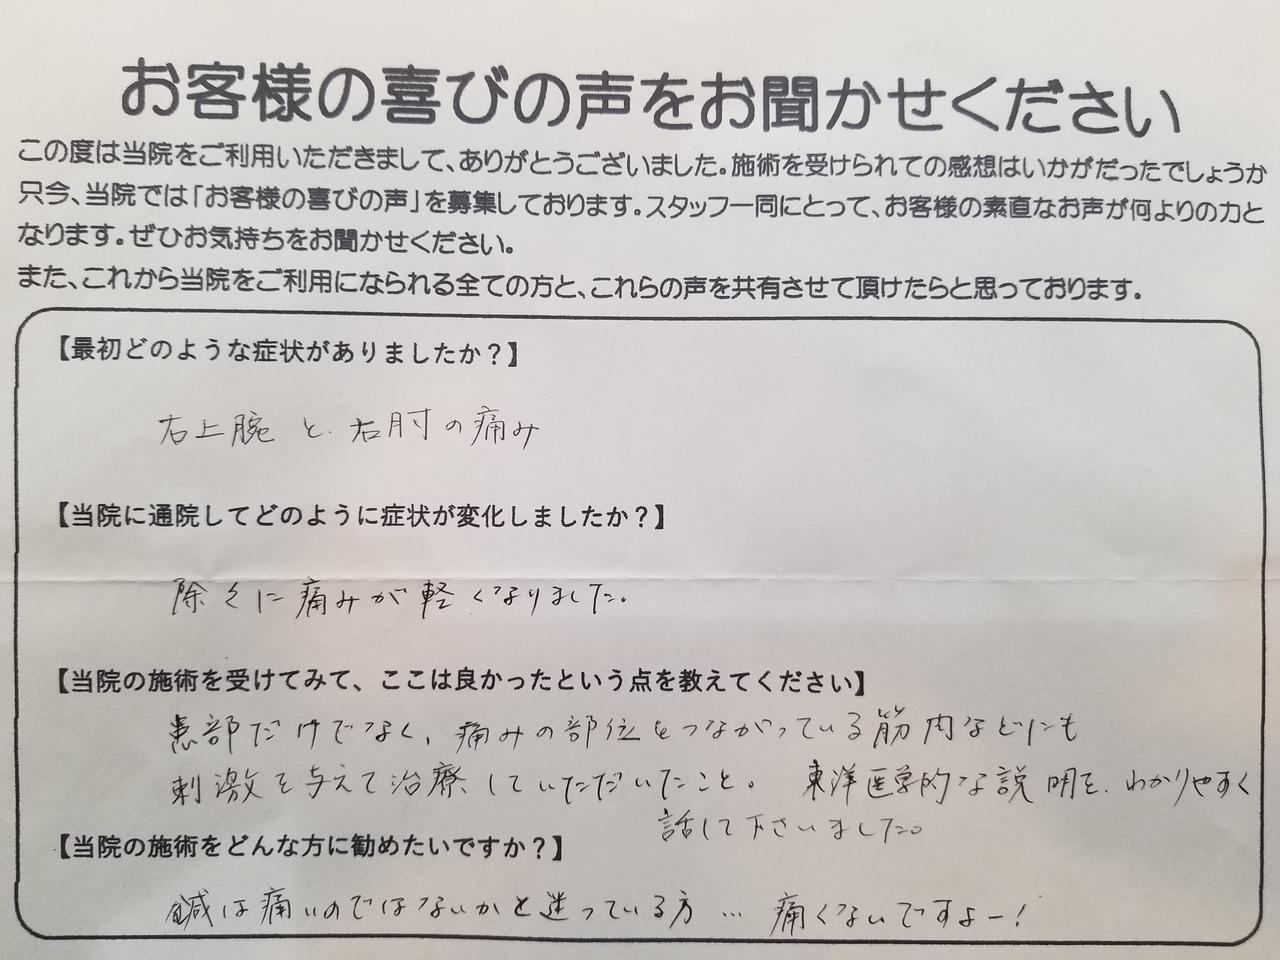 お客様の喜びの声をお聞かせください
この度は当院をご利用いただきまして、ありがとうございました。施術を受けられての感想はいかがだったでしょうか
只今、当院では「お客様の喜びの声」を募集しております。スタッフ一同にとって、お客様の素直なお声が何よりの力と
なります。ぜひお気持ちをお聞かせください。
また、これから当院をご利用になられる全ての方と、これらの声を共有させて頂けたらと思っております。
【最初どのような症状がありましたか？】
右上腕と、右肘の痛み
【当院に通院してどのように症状が変化しましたか？】
除々に痛みが軽くなりました。
【当院の施術を受けてみて、ここは良かったという点を教えてください】
患部だけでなく、痛みの部位をつながっている筋肉などにも
刺激を与えて治療していただいたこと。 東洋医学的な説明を、わかりやすく
話して下さいました。
【当院の施術をどんな方に勧めたいですか？】
鍼は痛いのではないかと迷っている方… 痛くないですよー！